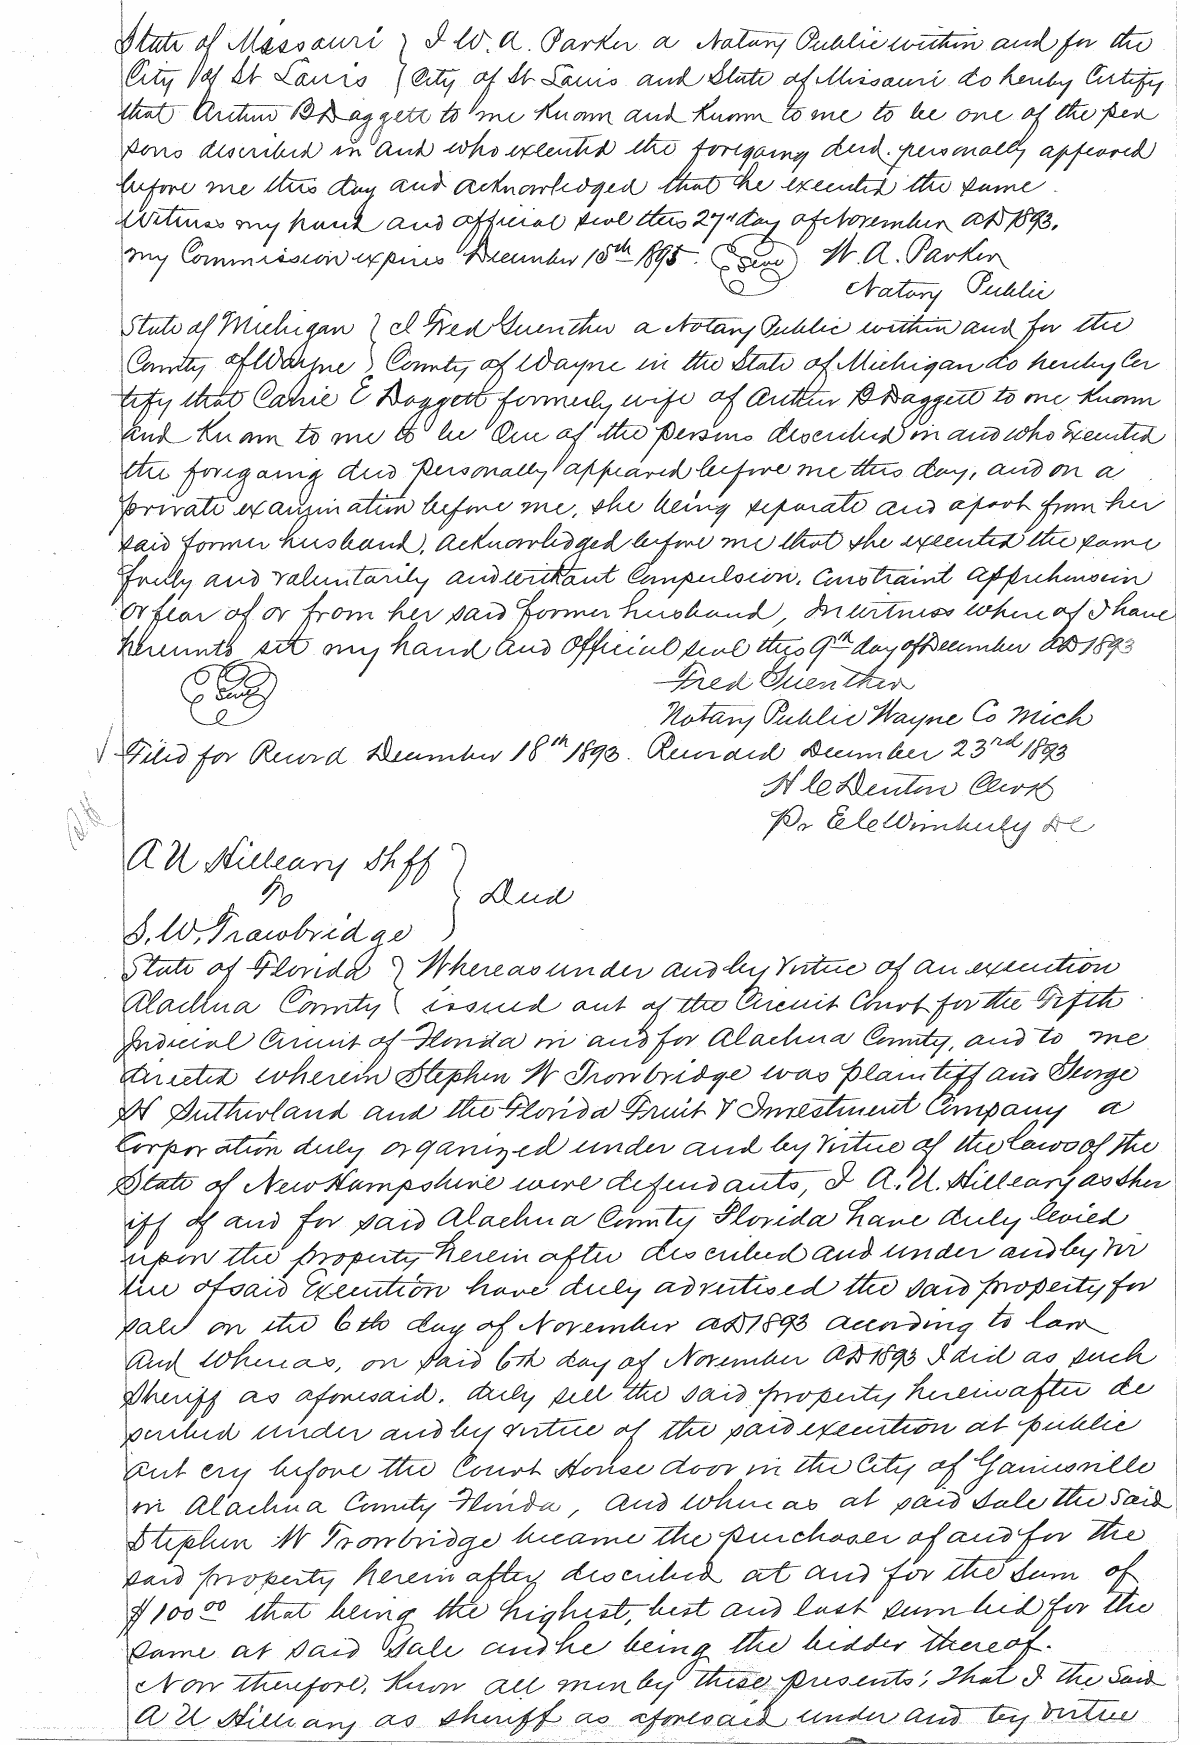 State of Missouri } I W. A. Parker a Notary Public within and for the
City of St Louis } City of St Louis and State of Missouri do hereby Certify
that Arthur B Daggett to me Known and Known to me to be one of the per
sons described in and who executed the foregoing deed. personally appeared
before me this day and acknowledged that he executed the same.
Witness my hand and official seal this 27" day of November AD 1893.
My Commission expires December 15th 1895. Seal W. A. Parker
Notary Public
State of Michigan } I Fred Guenther a Notary Public within and for the
County of Wayne } County of Wayne in the State of Michigan do hereby Cer
tify that Carrie E Daggett formerly wife of Arthur B Daggett to me Known
and Known to me to be One of the persons described in and who Executed
the foregoing deed personally appeared before me this day, and on a
private examination before me, she being separate and apart from her
said former husband, acknowledged before me that she executed the same
freely and voluntarily and without Compulsion, Constraint apprehension
or fear of or from her said former husband, In witness where of I have
hereunto set my hand and Official seal this 9th day of December AD 1893
Seal Fred Guenther
Notary Public Wayne Co Mich
Filed for Record December 18th 1893. Recorded December 23rd 1893
H C Denton Clerk
Pr E C Wimberly DC
A U Hilleary Shff
To } Deed
S. W. Trowbridge
State of Florida } Whereas under and by Virtue of an execution
Alachua County } issued out of the Circuit Court for the Fifth
Judicial Circuit of Florida in and for Alachua County, and to me
directed wherein Stephen W Trowbridge was plaintiff and George
H Sutherland and the Florida Fruit & Investment Company a
Corporation duly organized under and by Virtue of the laws of the
State of New Hampshire were defendants, I A. U. Hilleary as Sher
iff of and for said Alachua County Florida have duly levied
upon the property herein after described and under and by Vir
tue of said Execution have duly advertised the said property for
sale on the 6th day of November AD 1893 according to law
And Whereas, on said 6th day of November AD 1893 I did as such
Sheriff as aforesaid. duly sell the said property hereinafter de
scribed under and by virtue of the said execution at public
out cry before the Court House door in the City of Gainesville
in Alachua County Florida, and Whereas at said Sale the said
Stephen W Trowbridge became the purchaser of and for the
said property herein after described at and for the Sum of
$100.00 that being the highest, best and last sum bid for the
same at said Sale and he being the bidder thereof.
Now therefore, Know all men by these presents; That I the Said
A U Hilleary as sheriff as aforesaid under and by virtue